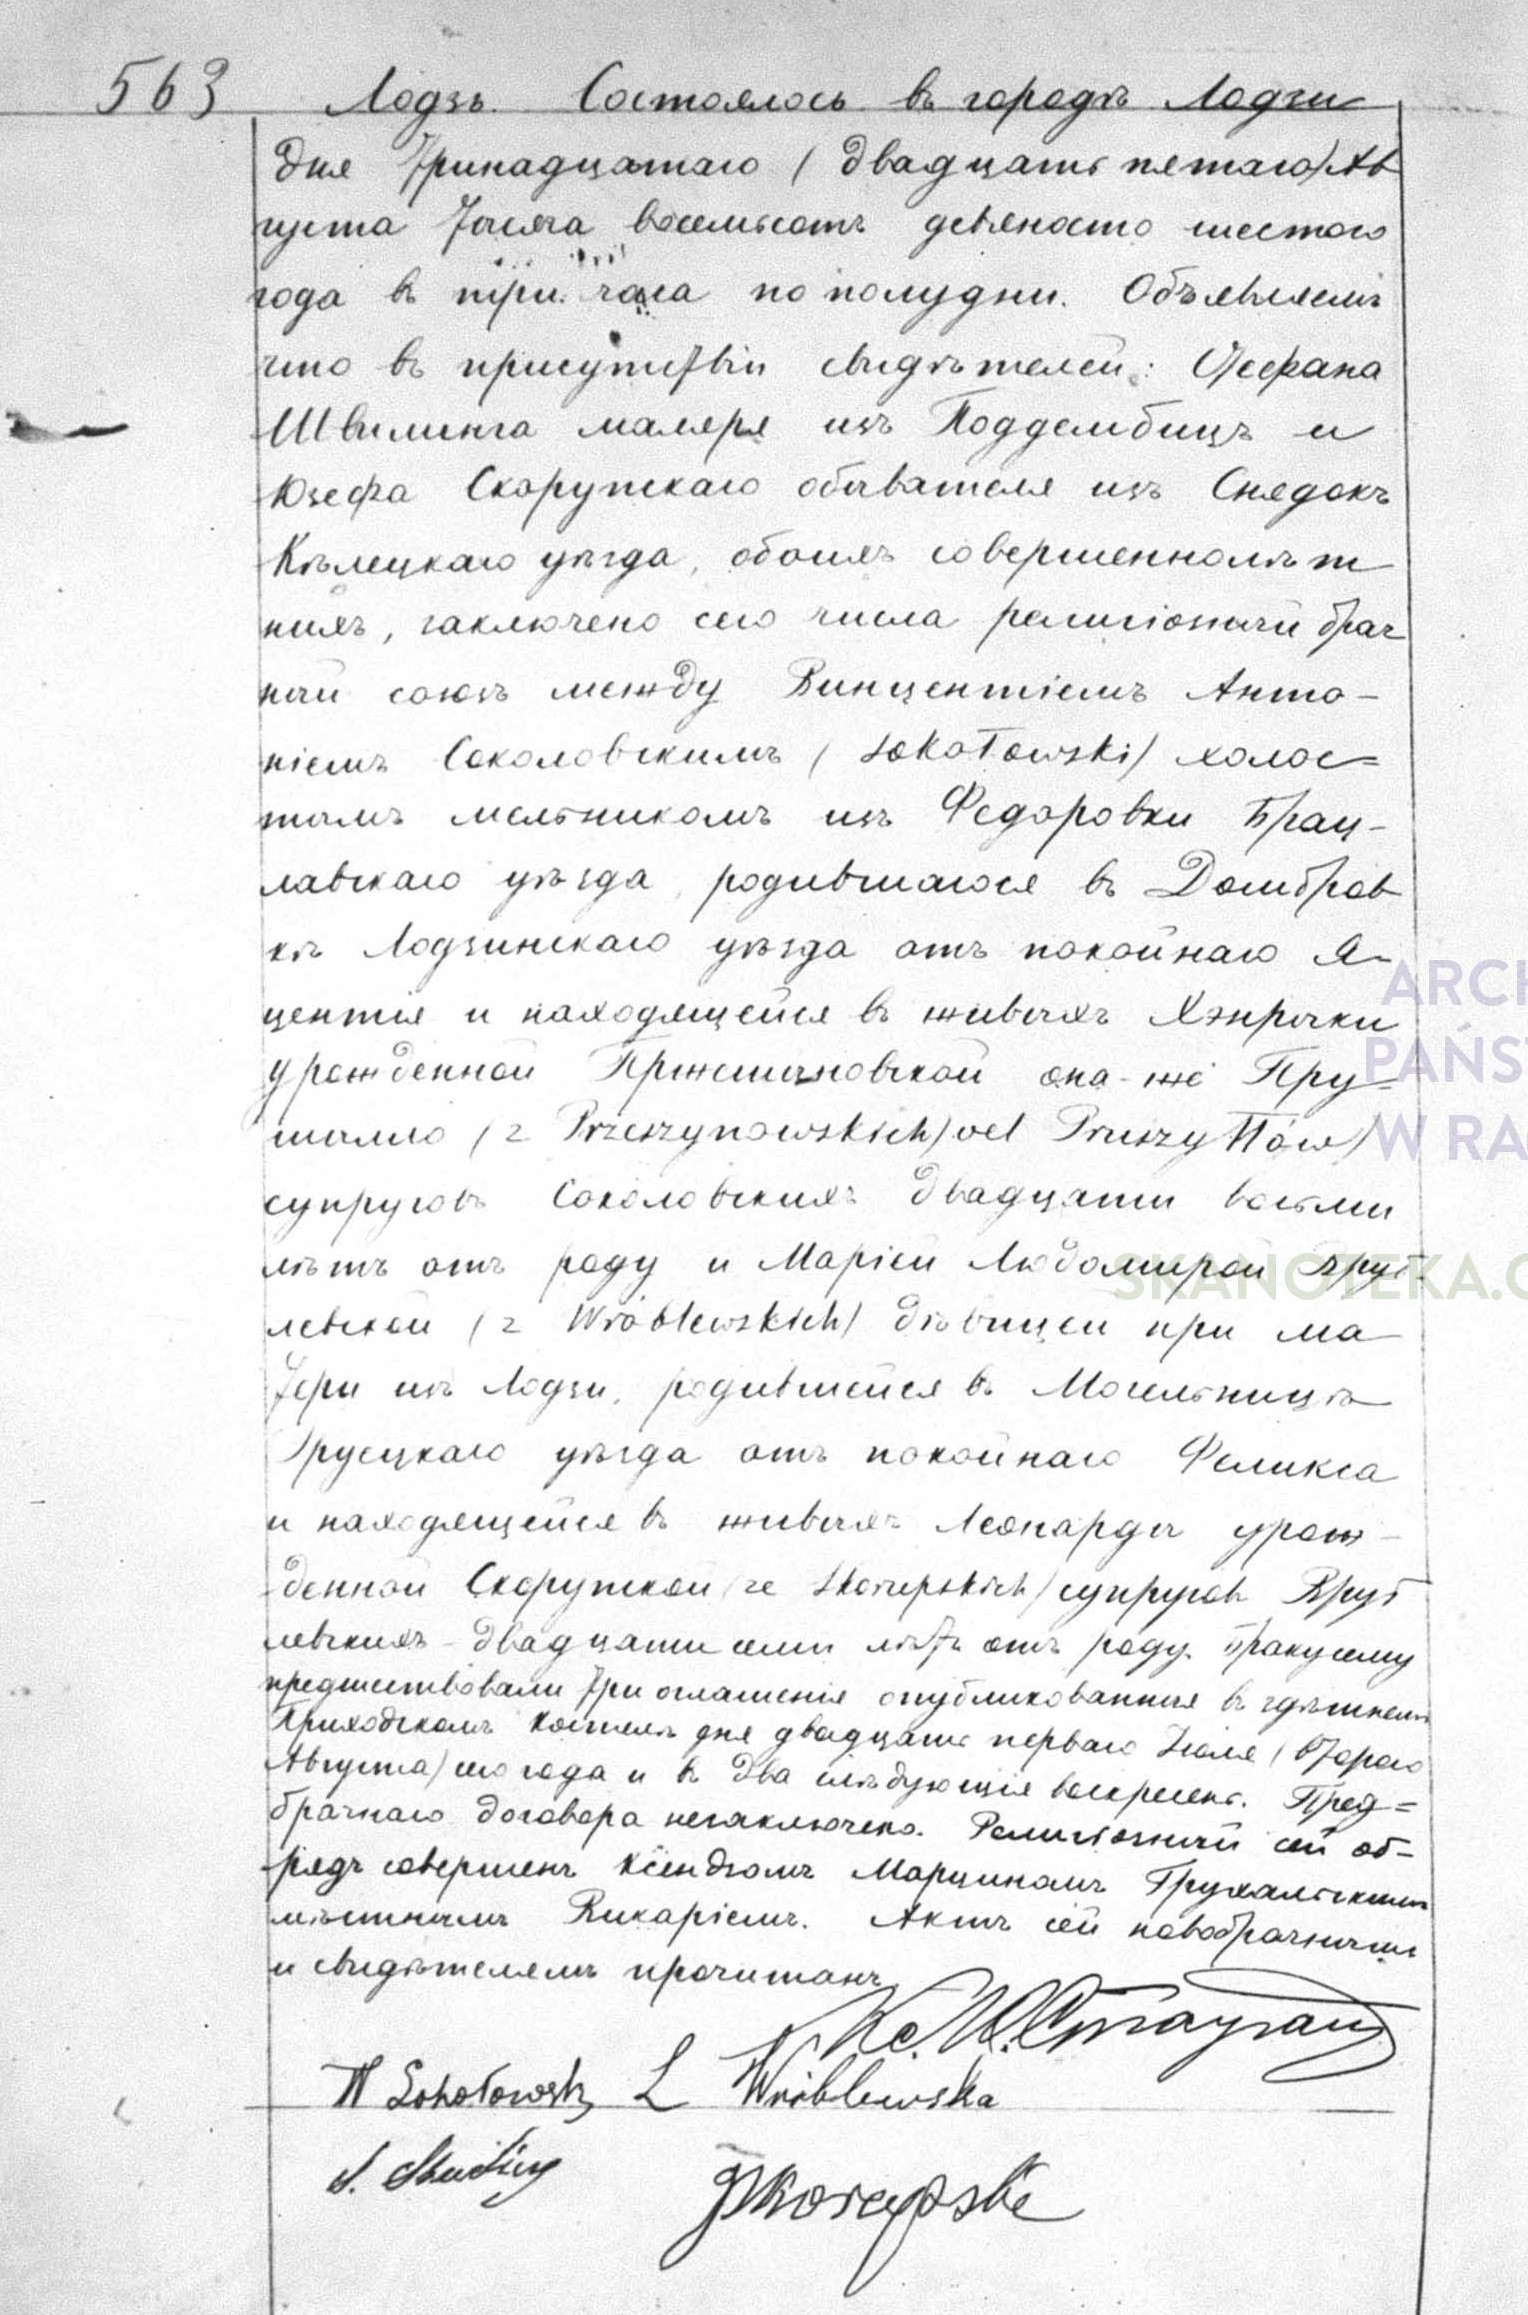 563 Лодзь. Состоялось въ городѣ Лодзи
дня тринадцатаго (двадцать пятаго) Ав
густа тысяча восемьсотъ девяносто шестого
года въ три часа по полудни. Объявляемъ
что въ присутствіи свидѣтелей: Стефана
Швилинга маляра изъ Поддембицъ и
Юзефа Скорупскаго обывателя изъ Снядокъ
Кѣлецкаго уѣзда, обоихъ совершеннолѣт
нихъ, заключенъ сего числа религіозный брач
ный союзъ между Винцентіемъ Анто-
ніемъ Соколовскимъ (Sokołowski) холос=
тымъ мельникомъ изъ Федоровки Брац-
лавскаго уѣзда, родившагося въ Домбров
кѣ Лодзинскаго уѣзда отъ покойнаго Я-
центія и находящейся въ живыхъ Хэнрыки
урожденной Пржешиновской она-же Пру=
шылло (z Przeszynowskich) vel Pruszyłłów)
супруговъ Соколовскихъ двадцати восьми
лѣтъ отъ роду и Маріей Любомирой Вруб-
левской (z Wróblewskich) дѣвицей при ма
тери изъ Лодзи, родившейся въ Могельницѣ
Груецкаго уѣзда отъ покойнаго Феликса
и находящейся въ живыхъ Леонарды урож-
денной Скорупской (ze Skorupskich) супруговъ Вруб
левскихъ двадцати семи лѣтъ отъ роду. Браку сему
предшествовали три оглашенія опубликованныя въ здѣшнемъ
Приходскомъ костелѣ дня двадцать перваго Іюля (втораго
Августа) сего года и въ два слѣдующія воскресенья. Пред=
брачнаго договора незаключено. Религіозный сей об-
рядъ совершенъ ксендзомъ Марциномъ Грухальскимъ
мѣстнымъ Викаріемъ. Актъ сей новобрачнымъ
и свидѣтелямъ прочитанъ.
Кс.
W Sokołowski L Wróblewska
S.
JSkorupski
ARCH
PAŃST
W RA
SKANOTEKA.G